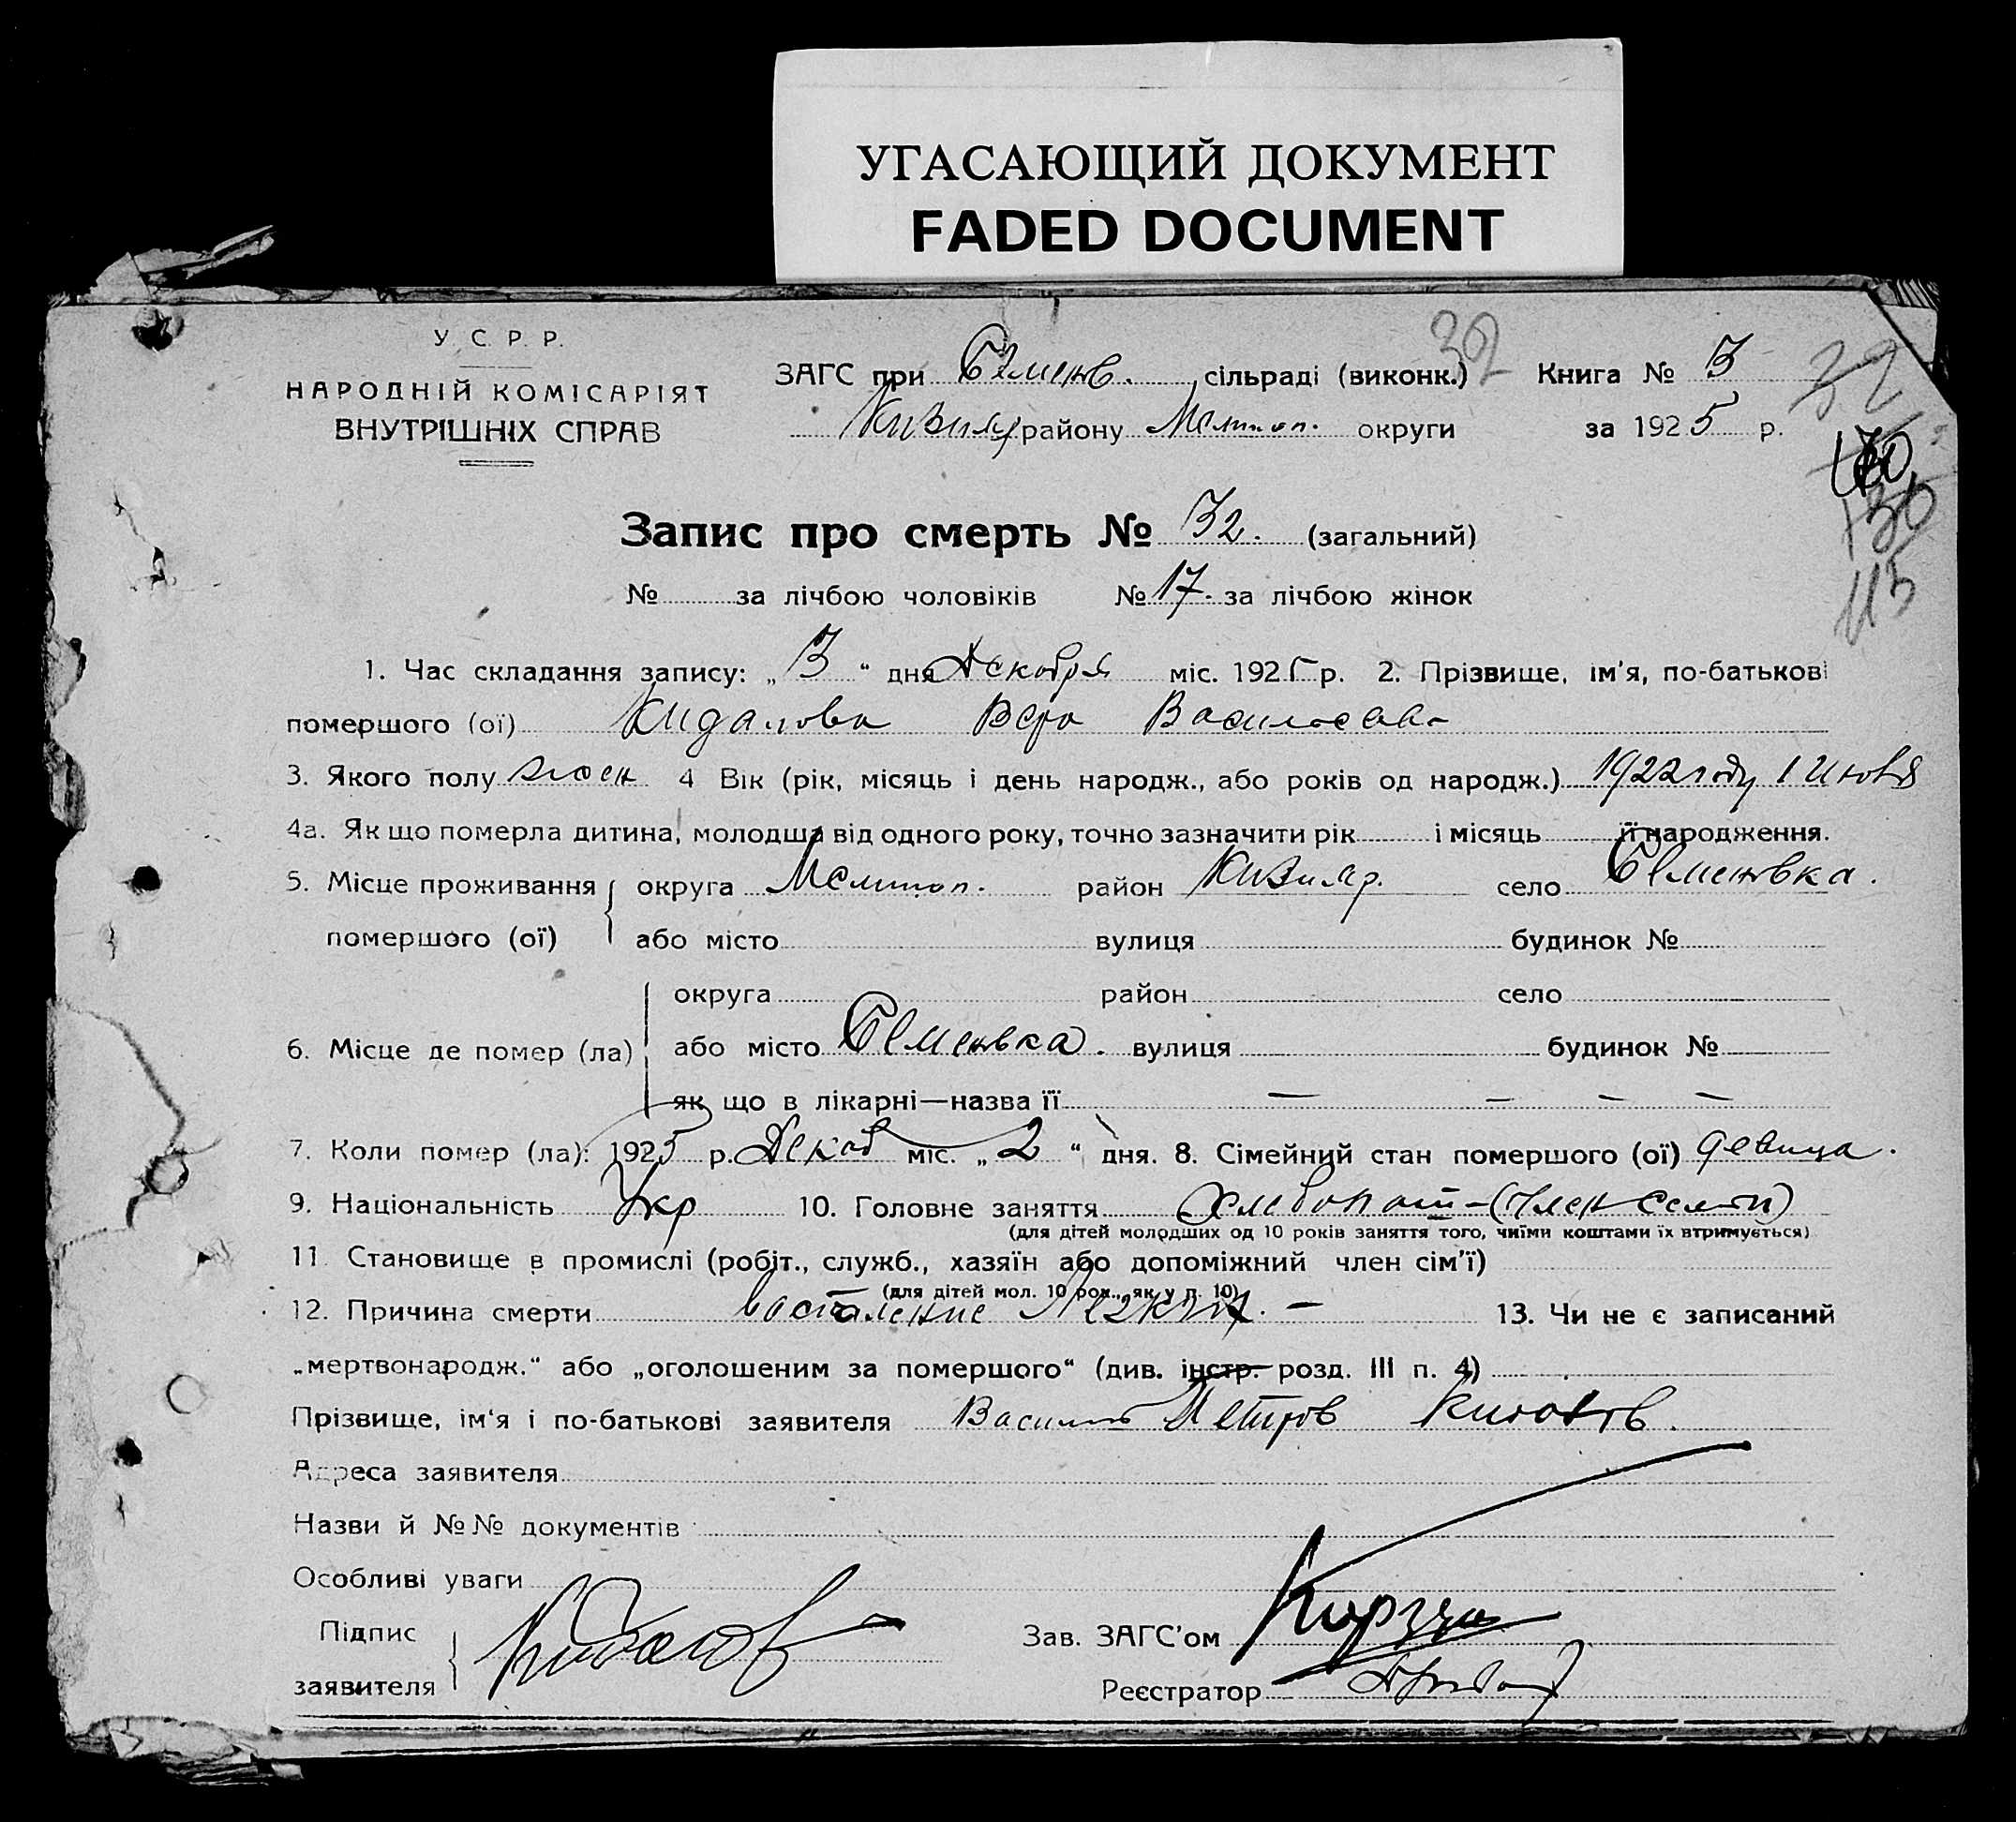 УГАСАЮЩИЙ ДОКУМЕНТ
FADED DOCUMENT
У. С. Р. Р.
НАРОДНІЙ КОМІСАРІЯТ
ВНУТРІШНІХ СПРАВ
ЗАГС при Семенов. сільраді (виконк.) 32 Книга № 3
Кизияр району Мелитоп. округи за 1925 р.
32
130
115
Запис про смерть № 32. (загальний)
№ за лічбою чоловіків № 17. за лічбою жінок
1. Час складання запису: „3“ дня Декабря міс. 1925 р. 2. Прізвище, ім'я, по-батькові
помершого (ої) Кидалова Вера Васильевна
3. Якого полу женск 4 Вік (рік, місяць і день народж., або років од народж.) 1922 году 1 Июня
4а. Як що померла дитина, молодша від одного року, точно зазначити рік і місяць її народження.
5. Місце проживання округа Мелитоп. район Кизияр. село Семеновка.
помершого (ої) або місто вулиця будинок №
округа район село
6. Місце де помер (ла) або місто Семеновка. вулиця будинок №
як що в лікарні—назва її — — — —
7. Коли помер (ла): 1925 р. Декаб міс. „2“ дня. 8. Сімейний стан помершого (ої) девица.
9. Національність Укр 10. Головне заняття Хлебопаш-(член семьи)
(для дітей молодших од 10 років заняття того, чиїми коштами їх втримується)
11. Становище в промислі (робіт., служб., хазяїн або допоміжний член сім'ї)
(для дітей мол. 10 рок., як у п. 10)
12. Причина смерти воспаление Легких. — 13. Чи не є записаний
„мертвонародж.“ або „оголошеним за помершого“ (див. інстр. розд. III п. 4)
Прізвище, ім'я і по-батькові заявителя Василий Петров Кидалов.
Адреса заявителя
Назви й №№ документів
Особливі уваги
Підпис
заявителя Кидалов
Зав. ЗАГС'ом
Реєстратор